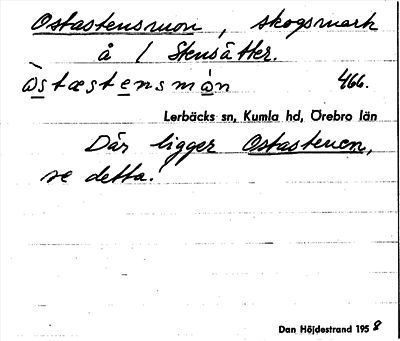 Ostastensmon, skogsmark
å 1 Stensätter.
ò̲stæste̲nsmå̲n 466.
Lerbäcks sn, Kumla hd, Örebro län
Där ligger Ostastenen,
se detta!
Dan Höjdestrand 1958